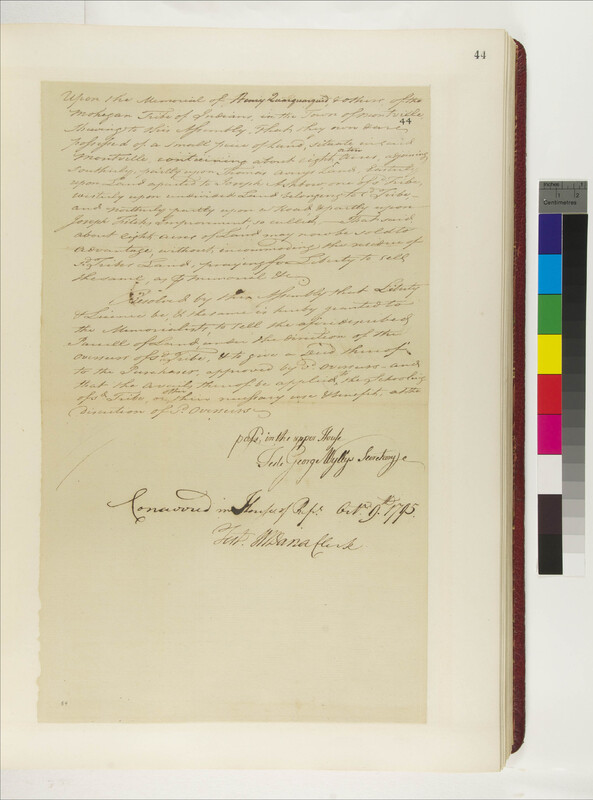 44
Upon the Memorial of Henry Quaquaquid, & others of the
Mohegan Tribe of Indians, in the Town of Montville
Shewing to this Assembly, That they own & are
44
possessed of a small piece of Land, situate in said
Montville, containing about eight acres, adjoining
Southerly, partly upon Thomas Land,
upon Land to Joseph Ashbow, one of sd. Tribe,
easterly upon undivided Land belonging to sd. Tribe
and northerly partly upon a Road & partly upon
Joseph Improvement, so called, That said
about eight acres of Land may now be sold to
advantage, without incommoding the residue of
sd. Tribes Land, praying for Liberty to sell
the same, as pr. memorial &c
Resolved by this Assembly that Liberty
& License be, & the same is hereby granted to
the Memorialists, to sell the aforedescribed
Parcell of Land under the direction of the
overseers of sd. Tribe, & to give a Deed thereof
to the Purchaser, approved by sd. Overseers and
that the avails thereof be applied, to the schooling
of sd. Tribe, or other their necessary use & benefit, at the
direction of sd. Overseers
pass'd, in the upper House
Teste George Wyllys Secretary
Concurred in House of Repts. Octr. 9th. 1795.
Test. W Dana Clerk
44
Inches 1 2
Centimetres